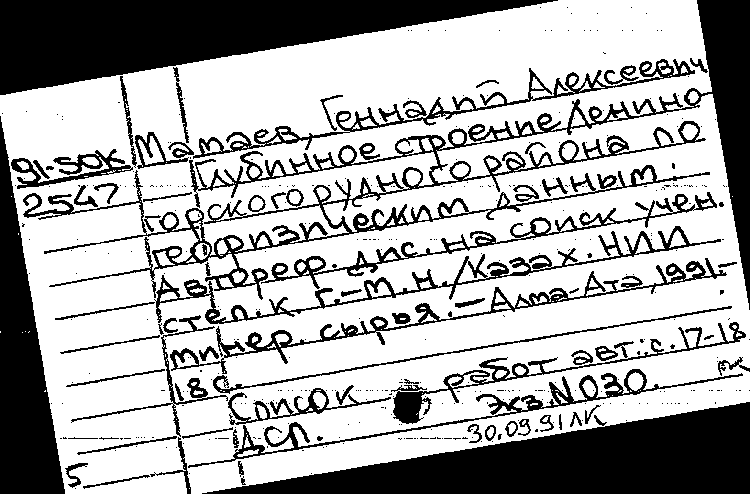 91-50К
2547
Матаев, Геннадий Алексеевич
Глубинное строение Ленино
горского рудного района по
геофизическим данным:
Автореф. дис. на соиск учен.
степ. к. г.-м.н. /Казах. НИИ
минер. сырья. - Алма-Ата, 1991.-
18 с.
Список работ авт.: с. 17-18
ДСП. Экз. N 030.
30.09.91 ЛК
5